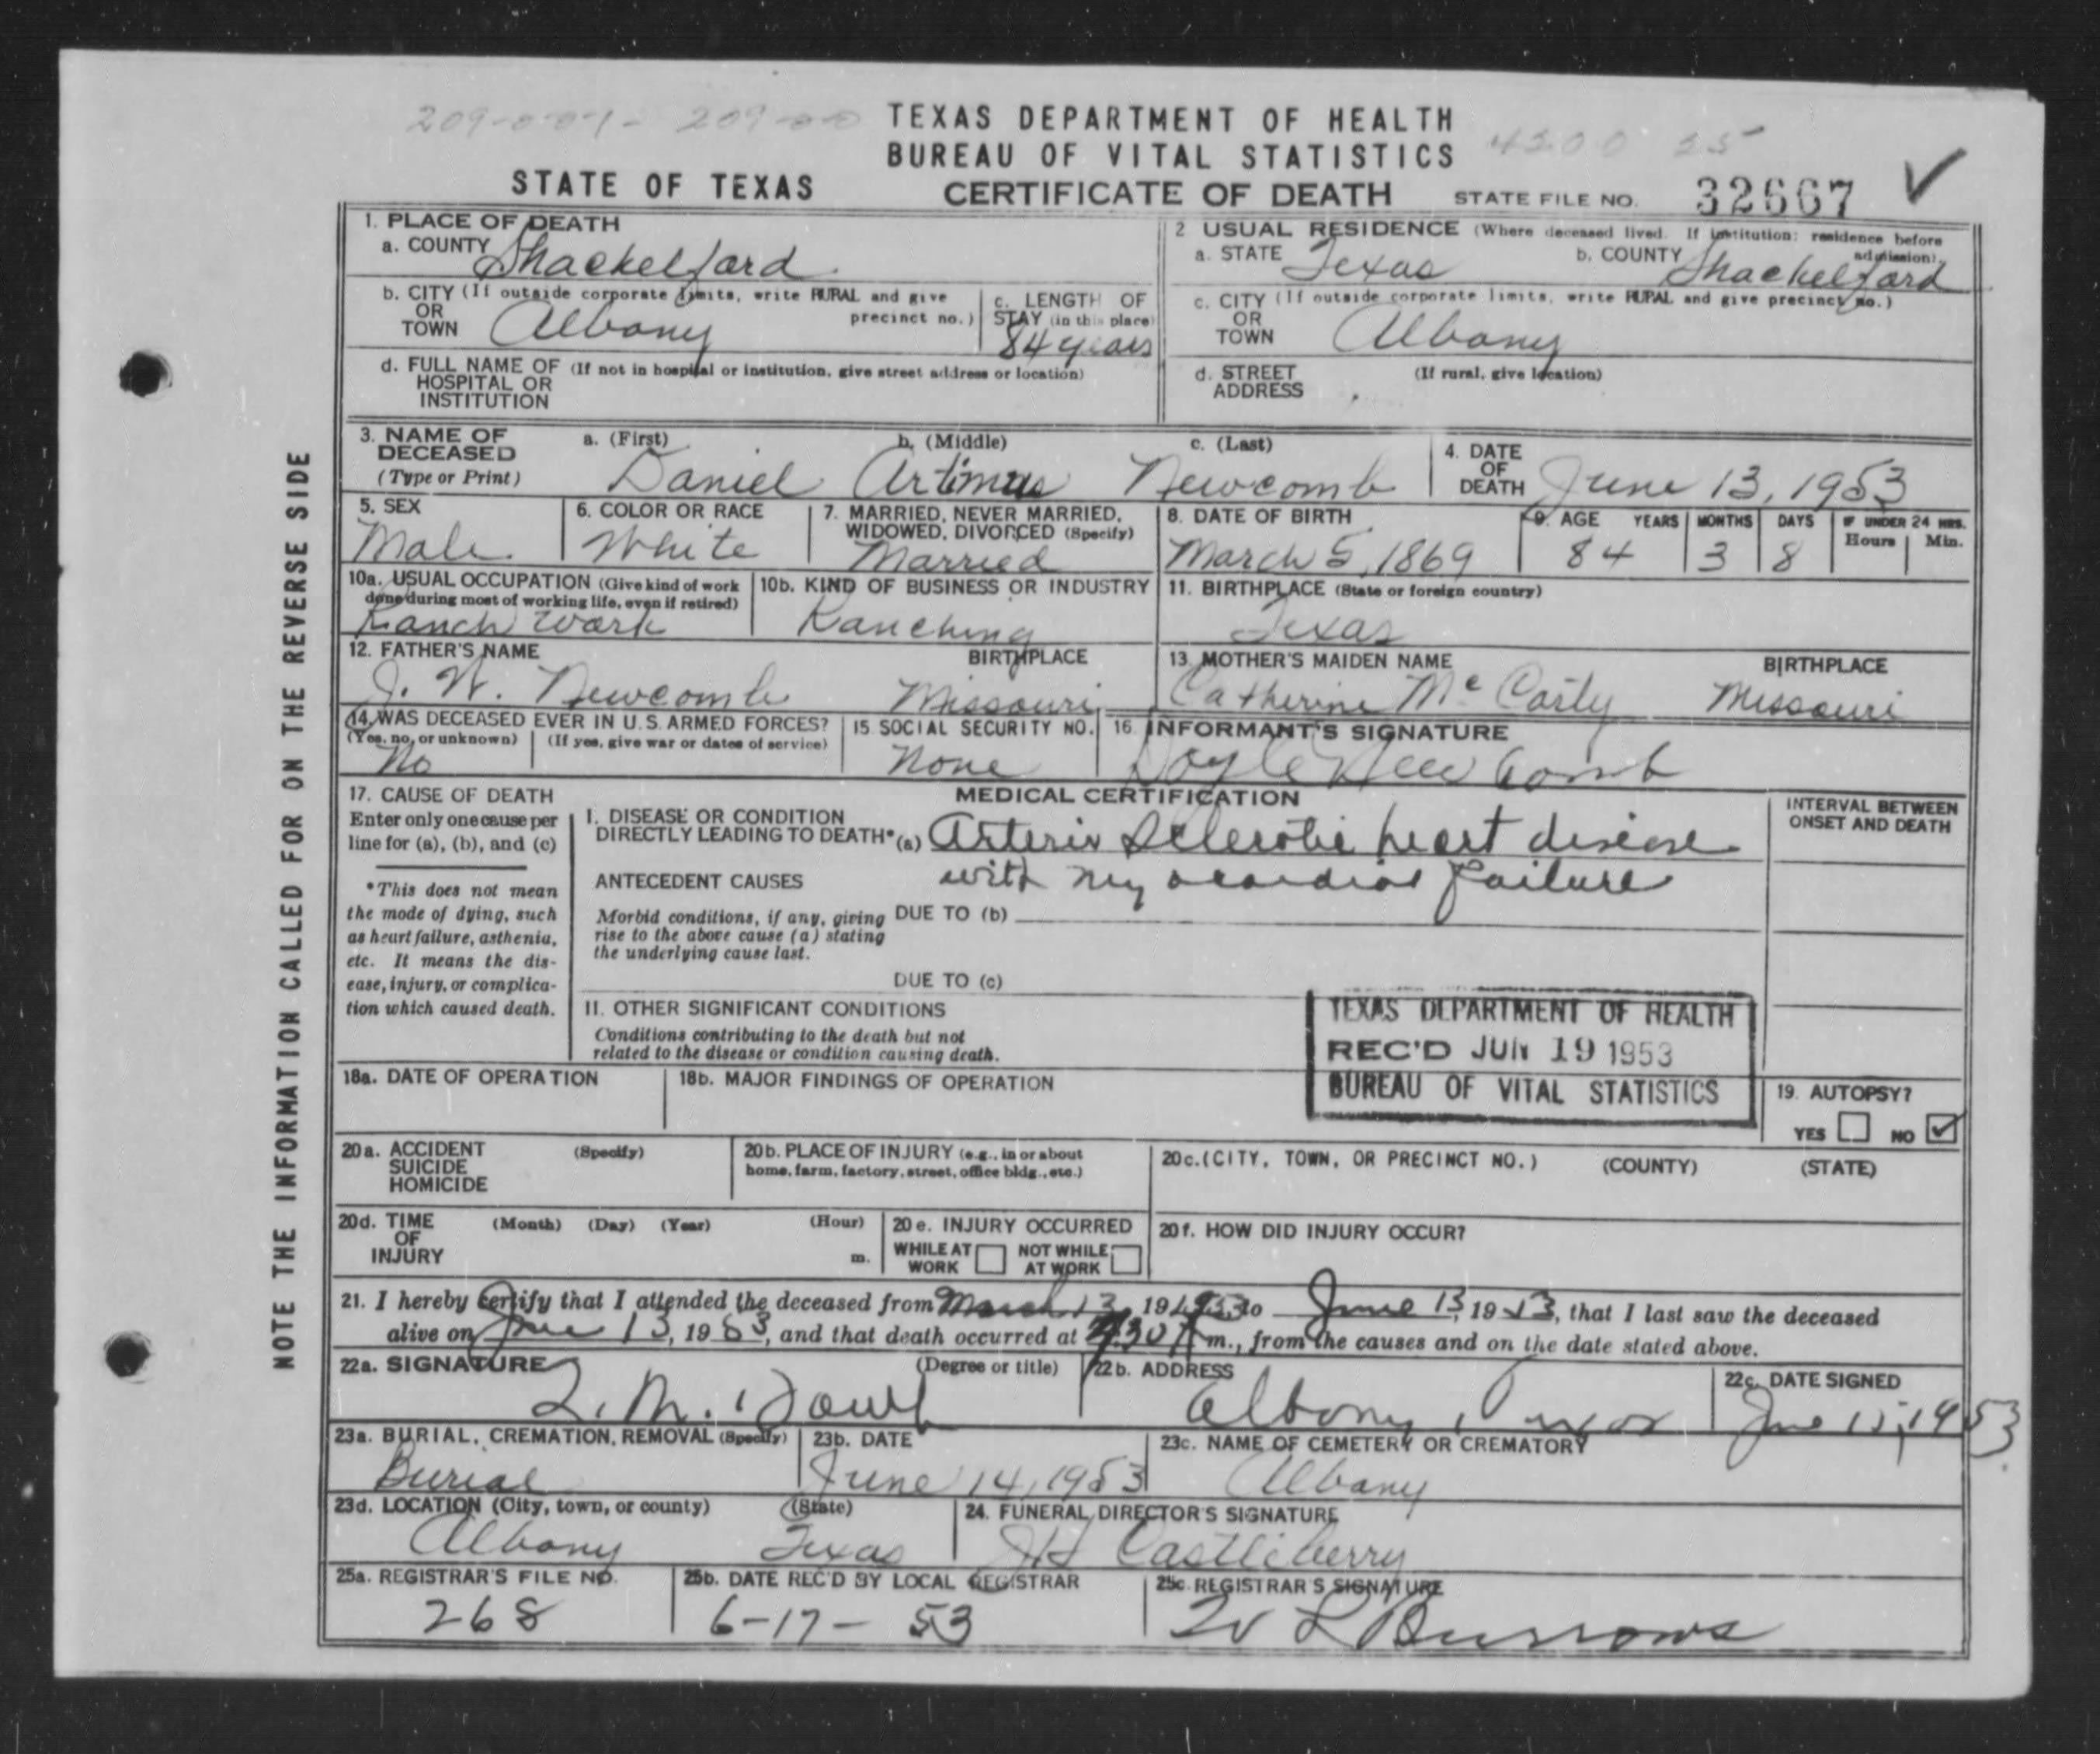 209-0-07- 209-00
TEXAS DEPARTMENT OF HEALTH
BUREAU OF VITAL STATISTICS
4200 25
STATE OF TEXAS CERTIFICATE OF DEATH STATE FILE NO. 32667 ✓
1. PLACE OF DEATH
a. COUNTY Shackelford
2 USUAL RESIDENCE (Where deceased lived. If institution: residence before admission).
a. STATE Texas b. COUNTY Shackelford
b. CITY (If outside corporate limits, write RURAL and give precinct no.)
OR
TOWN Albany
c. LENGTH OF
STAY (in this place)
84 years
c. CITY (If outside corporate limits, write RURAL and give precinct no.)
OR
TOWN Albany
d. FULL NAME OF (If not in hospital or institution, give street address or location)
HOSPITAL OR
INSTITUTION
d. STREET (If rural, give location)
ADDRESS
3. NAME OF
DECEASED
(Type or Print)
a. (First) b. (Middle) c. (Last)
Daniel Artimus Newcomb
4. DATE
OF
DEATH June 13, 1953
5. SEX
Male
6. COLOR OR RACE
White
7. MARRIED, NEVER MARRIED,
WIDOWED, DIVORCED (Specify)
Married
8. DATE OF BIRTH
March 5, 1869
9. AGE YEARS MONTHS DAYS IF UNDER 24 HRS.
Hours Min.
84 3 8
10a. USUAL OCCUPATION (Give kind of work
done during most of working life, even if retired)
Ranch Work
10b. KIND OF BUSINESS OR INDUSTRY
Ranching
11. BIRTHPLACE (State or foreign country)
Texas
12. FATHER'S NAME BIRTHPLACE
J. W. Newcomb Missouri
13. MOTHER'S MAIDEN NAME BIRTHPLACE
Catherine McCarty Missouri
14. WAS DECEASED EVER IN U.S. ARMED FORCES?
(Yes, no, or unknown) (If yes, give war or dates of service)
No
15. SOCIAL SECURITY NO.
None
16. INFORMANT'S SIGNATURE
Doyle Newcomb
17. CAUSE OF DEATH
Enter only one cause per
line for (a), (b), and (c)
*This does not mean
the mode of dying, such
as heart failure, asthenia,
etc. It means the dis-
ease, injury, or complica-
tion which caused death.
MEDICAL CERTIFICATION
I. DISEASE OR CONDITION
DIRECTLY LEADING TO DEATH* (a) Arterio Sclerotic heart disease
with myocardial failure
ANTECEDENT CAUSES
Morbid conditions, if any, giving
rise to the above cause (a) stating
the underlying cause last.
DUE TO (b)
DUE TO (c)
INTERVAL BETWEEN
ONSET AND DEATH
II. OTHER SIGNIFICANT CONDITIONS
Conditions contributing to the death but not
related to the disease or condition causing death.
TEXAS DEPARTMENT OF HEALTH
REC'D JUN 19 1953
BUREAU OF VITAL STATISTICS
18a. DATE OF OPERATION
18b. MAJOR FINDINGS OF OPERATION
19. AUTOPSY?
YES NO ✓
20a. ACCIDENT (Specify)
SUICIDE
HOMICIDE
20b. PLACE OF INJURY (e.g., in or about
home, farm, factory, street, office bldg., etc.)
20c. (CITY, TOWN, OR PRECINCT NO.) (COUNTY) (STATE)
20d. TIME (Month) (Day) (Year) (Hour)
OF
INJURY m.
20e. INJURY OCCURRED
WHILE AT WORK NOT WHILE AT WORK
20f. HOW DID INJURY OCCUR?
21. I hereby certify that I attended the deceased from March 13, 1953 to June 13, 1953, that I last saw the deceased
alive on June 13, 1953, and that death occurred at :30 m., from the causes and on the date stated above.
22a. SIGNATURE (Degree or title)
22b. ADDRESS
Albany, Texas
22c. DATE SIGNED
June 15, 1953
23a. BURIAL, CREMATION, REMOVAL (Specify)
Burial
23b. DATE
June 14, 1953
23c. NAME OF CEMETERY OR CREMATORY
Albany
23d. LOCATION (City, town, or county) (State)
Albany Texas
24. FUNERAL DIRECTOR'S SIGNATURE
JH Castleberry
25a. REGISTRAR'S FILE NO.
268
25b. DATE REC'D BY LOCAL REGISTRAR
6-17-53
25c. REGISTRAR'S SIGNATURE
W L Burrows
NOTE THE INFORMATION CALLED FOR ON THE REVERSE SIDE